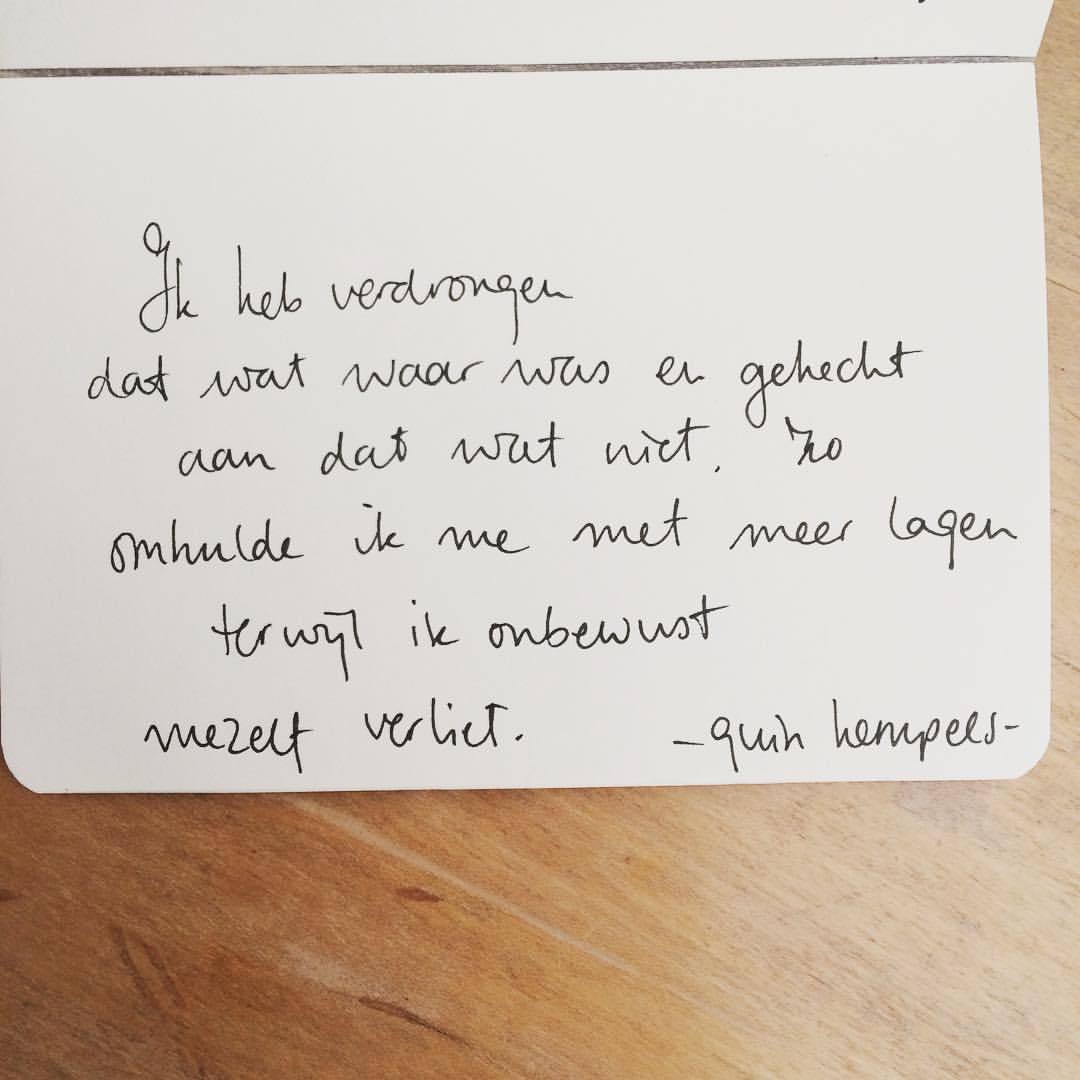 Ik heb verdrongen
dat wat waar was en gehecht
aan dat wat niet. Zo
omhulde ik me met meer lagen
terwijl ik onbewust
mezelf verliet. -quin hempels-